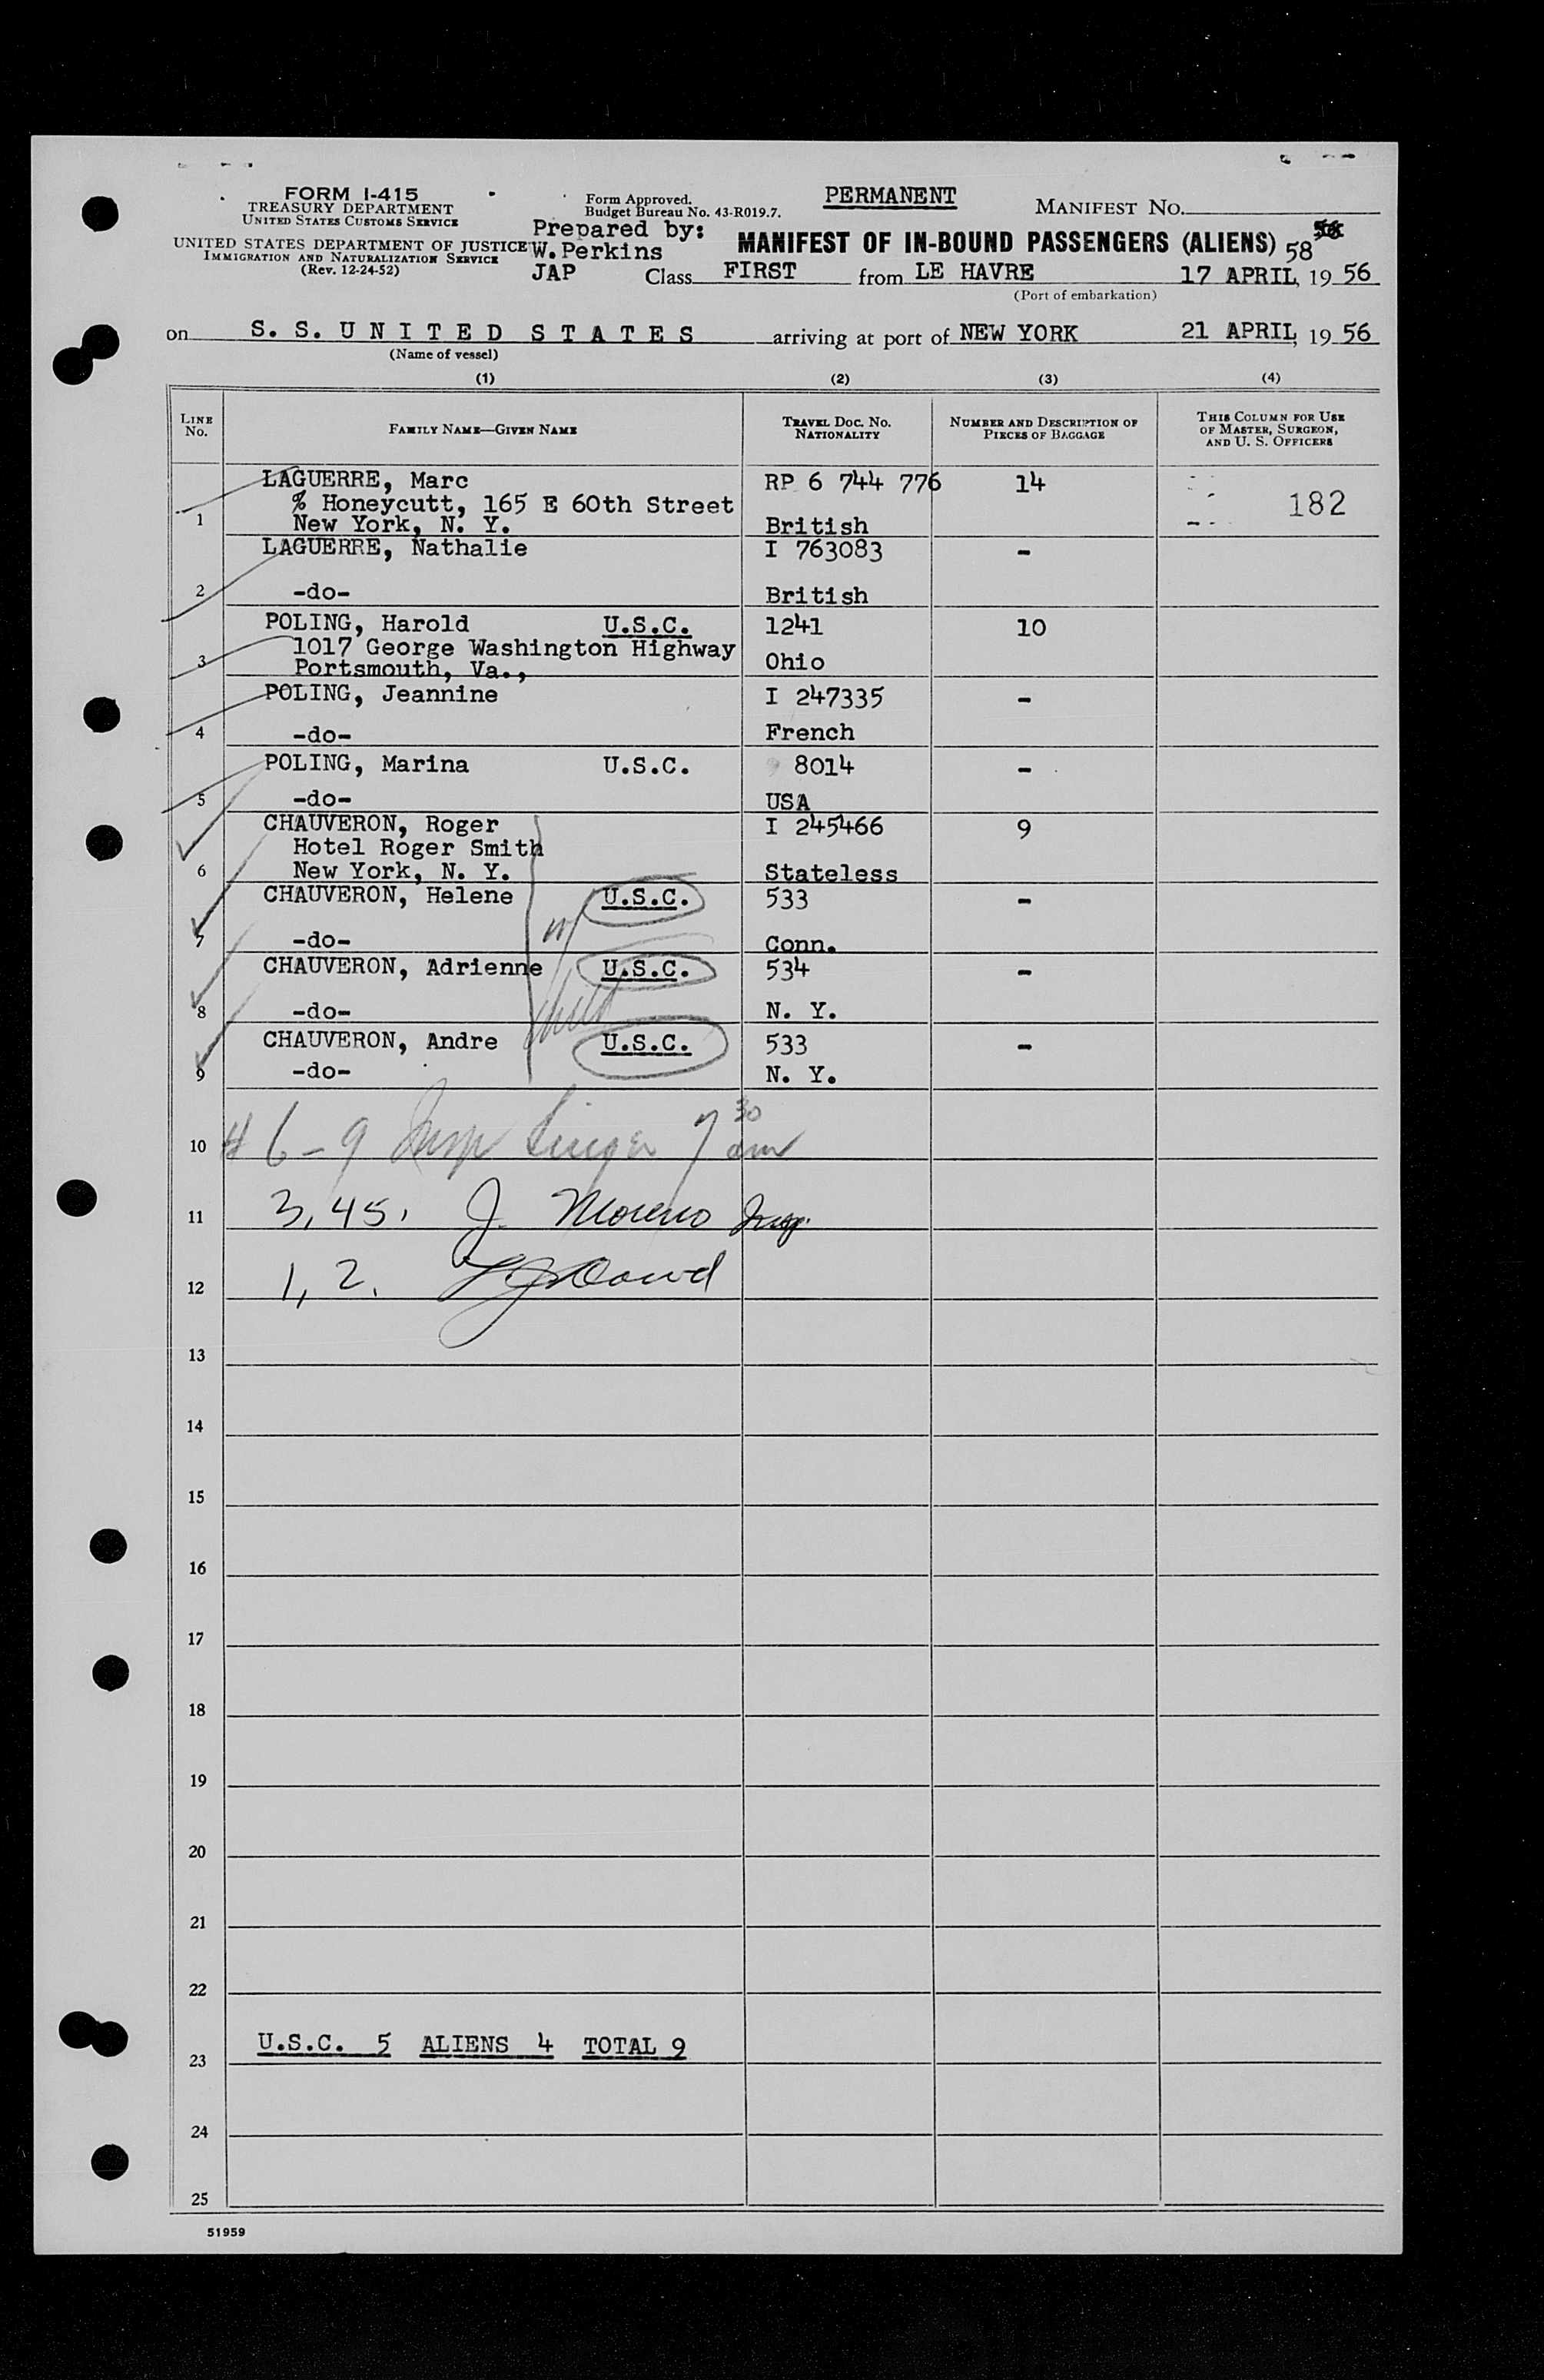 FORM I-415
TREASURY DEPARTMENT
UNITED STATES CUSTOMS SERVICE
UNITED STATES DEPARTMENT OF JUSTICE
IMMIGRATION AND NATURALIZATION SERVICE
(Rev. 12-24-52)
Form Approved.
Budget Bureau No. 43-R019.7.
Prepared by:
W. Perkins
JAP
PERMANENT
MANIFEST NO.
MANIFEST OF IN-BOUND PASSENGERS (ALIENS) 58
Class FIRST from LE HAVRE 17 APRIL, 19 56
(Port of embarkation)
on S. S. UNITED STATES arriving at port of NEW YORK 21 APRIL, 19 56
(Name of vessel)
(1) (2) (3) (4)
LINE No. FAMILY NAME—GIVEN NAME TRAVEL DOC. NO. NATIONALITY NUMBER AND DESCRIPTION OF PIECES OF BAGGAGE THIS COLUMN FOR USE OF MASTER, SURGEON, AND U. S. OFFICERS
LAGUERRE, Marc RP 6 744 776 14
% Honeycutt, 165 E 60th Street 182
1 New York, N. Y. British
LAGUERRE, Nathalie I 763083 -
2 -do- British
POLING, Harold U.S.C. 1241 10
1017 George Washington Highway
3 Portsmouth, Va., Ohio
POLING, Jeannine I 247335 -
4 -do- French
POLING, Marina U.S.C. 8014 -
5 -do- USA
CHAUVERON, Roger I 245466 9
Hotel Roger Smith
6 New York, N. Y. Stateless
CHAUVERON, Helene U.S.C. 533 -
7 -do- Conn.
CHAUVERON, Adrienne U.S.C. 534 -
8 -do- N. Y.
CHAUVERON, Andre U.S.C. 533 -
9 -do- N. Y.
10 # 6-9 Insp 7 30 am
11 3, 4 5, J. Moreno Insp.
12 1, 2.
13
14
15
16
17
18
19
20
21
22
23 U.S.C. 5 ALIENS 4 TOTAL 9
24
25
51959